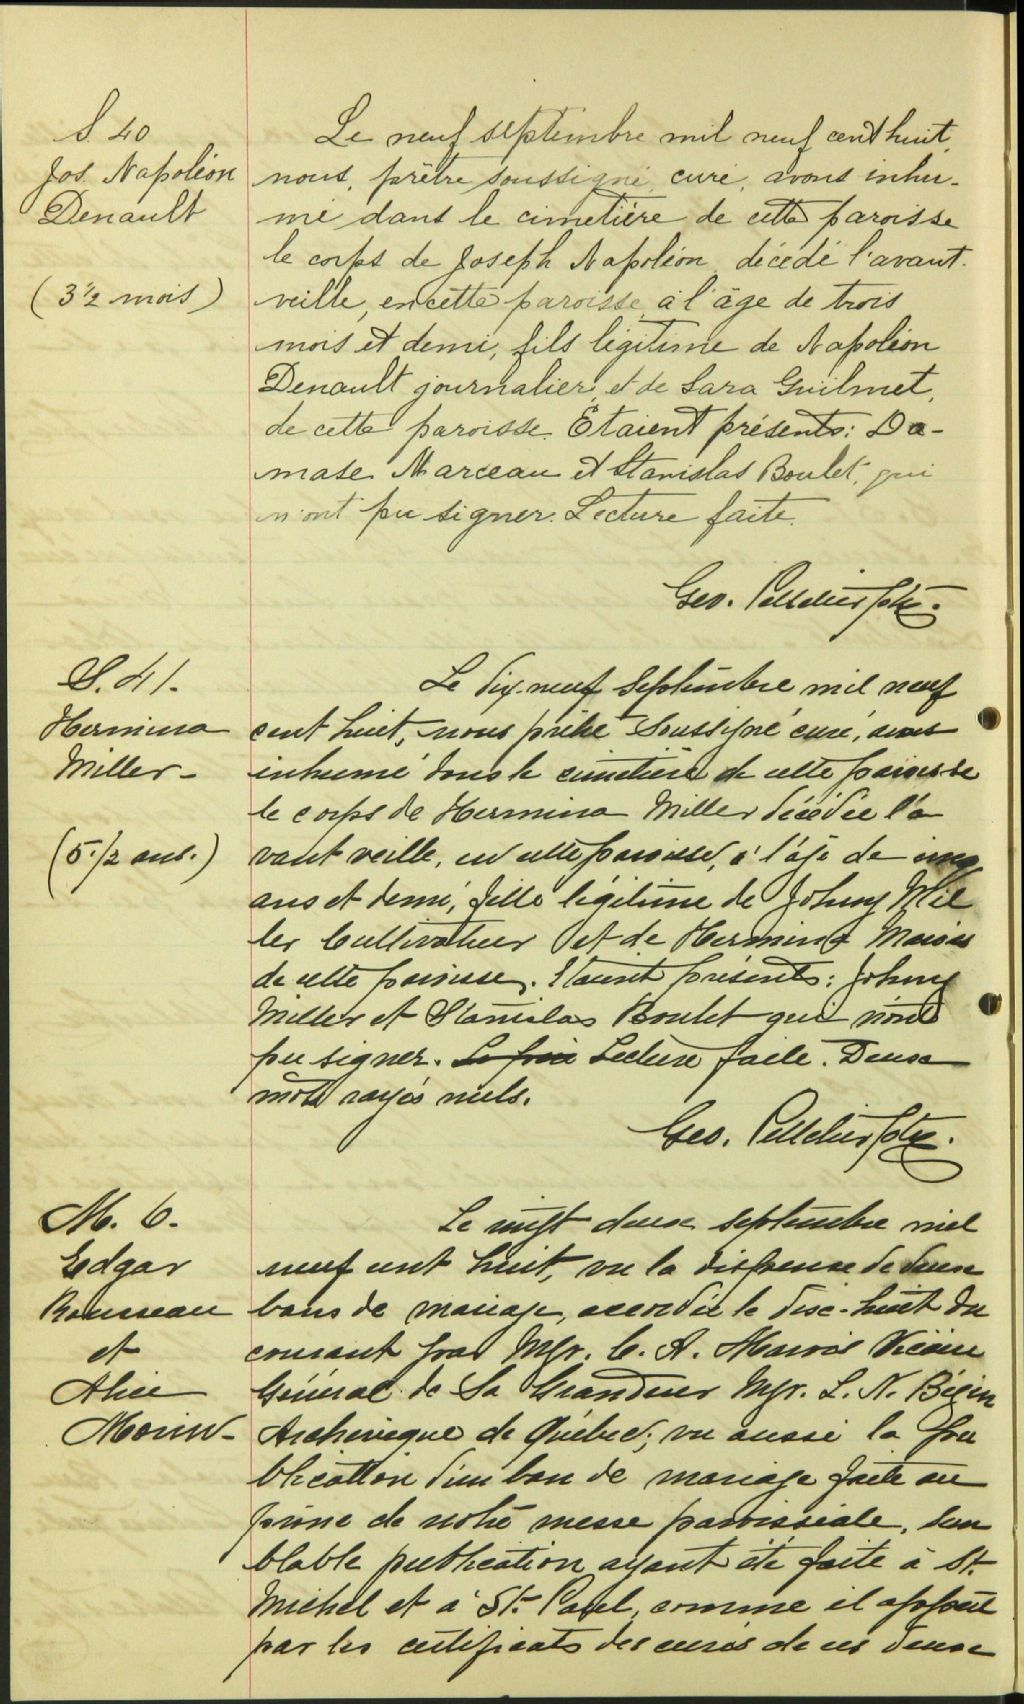 S. 40
Jos. Napoléon
Denault
(3 1/2 mois)
Le neuf septembre mil neuf cent huit,
nous, prêtre soussigné, curé, avons inhu-
mé dans le cimetière de cette paroisse
le corps de Joseph Napoléon, décédé l'avant-
veille, en cette paroisse, à l'âge de trois
mois et demi, fils légitime de Napoléon
Denault journalier, et de Sara Guilmet,
de cette paroisse. Étaient présents: Da-
mase Marceau et Stanislas Boulet, qui
n'ont pu signer. Lecture faite.
Geo. Pelletier ptre.
S. 41.
Hermina
Miller-
(5.1/2 ans.)
Le dix-neuf Septembre mil neuf
cent huit, nous prêtre Soussigné curé, avons
inhumé dans le cimetière de cette paroisse
le corps de Hermina Miller décédée l'a
vant veille, en cette paroisse, à l'âge de cinq
ans et demi, fille légitime de Johny Mil
ler Cultivateur et de Hermina Marois
de cette paroisse. Étaient présents: Johny
Miller et Stanislas Boulet qui n'ont
pu signer. Lecture faite. Deux
mots rayés nuls.
Geo. Pelletier ptre.
M. 6.
Edgar
Rousseau
et
Alice
Morin-
Le vingt deux septembre mil
neuf cent huit, vu la dispense de deux
bans de mariage, accordée le dix-huit du
courant par Mgr. C. A. Marois Vicaire
Général de Sa Grandeur Mgr. L. N. Bégin
Archevêque de Québec; vu aussi la pu
blication d'un ban de mariage faite au
prône de notre messe paroissiale, sem
blable publication ayant été faite à St.
Michel et à St. Paul, comme il appert
par les certificats des curés de ces deux